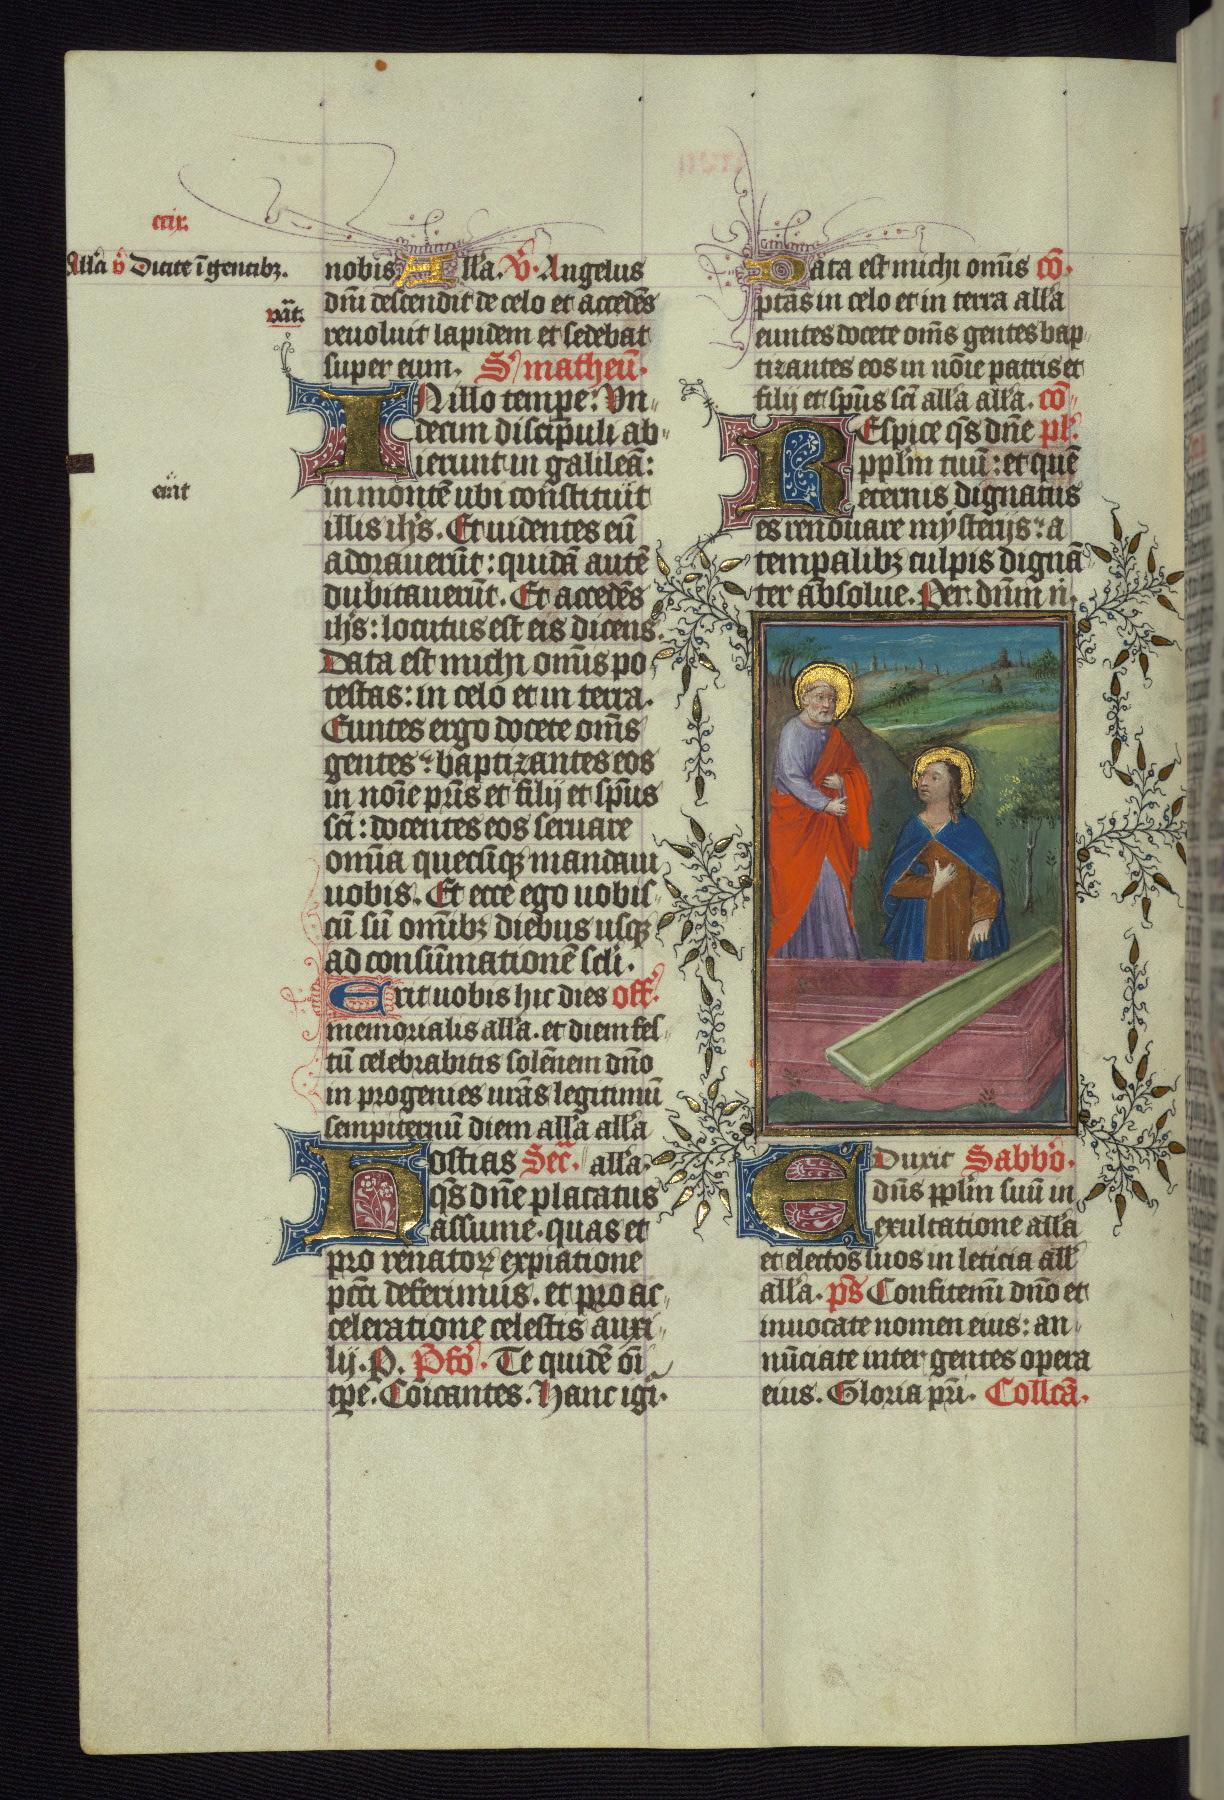 ccix.
All'a v̄ Dicite ī gentib3.
nobis All'a. V̄. Angelus
dnī descendit de celo et accedēs
reuoluit lapidem et sedebat
super eum. S' matheū.
IN illo tempe: Vn-
decim discipuli ab-
ierunt in galileā:
erūt
in montē ubi constituit
illis ih's. Et uidentes eū
adorauerūt: quidā autē
dubitauerūt. Et accedēs
ih's: locutus est eis dicens.
Data est michi om̄is po-
testas: in celo et in terra.
Euntes ergo docete om̄s
gentes: baptizantes eos
in noīe pr̄is et filij et sp̄us
sc̄i: docentes eos seruare
om̄ia quecūq3 mandaui
uobis. Et ecce ego uobis-
cū sū om̄ib3 diebus usq3
ad consūmationē scl̄i.
Erit uobis hic dies off'.
memorialis all'a. et diem fes-
tū celebrabitis solēnem dn̄o
in progenies ur̄as legitimū
sempiternū diem all'a all'a
Hostias Sec̄. all'a.
q̄s dn̄e placatus
assume. quas et
pro renator2 expiatione
pc̄ti deferimus. et pro ac-
celeratione celestis auxi-
lij. P. P̄fō. Te quidē oī
tp̄e. Cōicantes. Hanc igi.
Data est michi om̄is cō.
ptās in celo et in terra all'a
euntes docete om̄s gentes bap-
tizantes eos in nōie patris et
filij et sp̄us sc̄i all'a all'a. cō
REspice q̄s dn̄e pl'.
pplm̄ tuū: et quē
eternis dignatus
es renouare mysterijs: a
tempalib3 culpis dignā-
ter absolue. Per. dn̄m n̄.
EDuxit Sabb'o.
dn̄s pplm̄ suū in
exultatione all'a
et electos suos in leticia all'
all'a. p̄s Confitemī dn̄o et
inuocate nomen eius: an-
nūciate inter gentes opera
eius. Gloria pr̄i. Collcā.